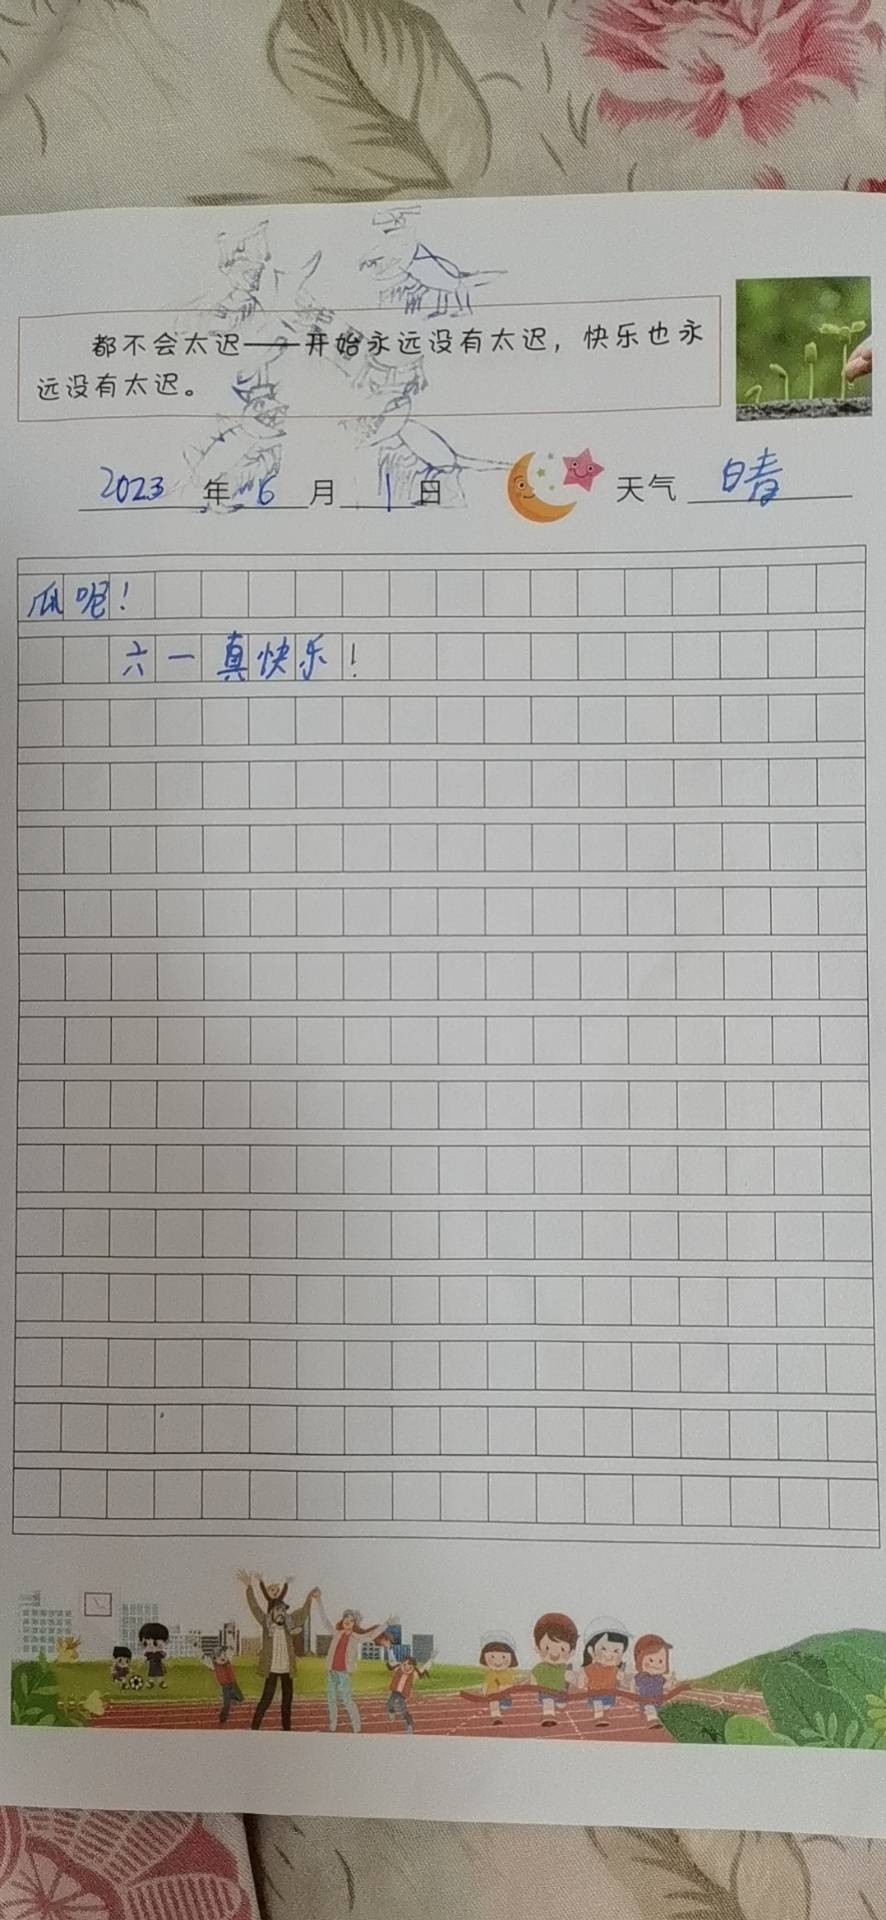 都不会太迟——开始永远没有太迟，快乐也永
远没有太迟。
2023年6月1日 天气 晴
瓜呢！
六一真快乐！